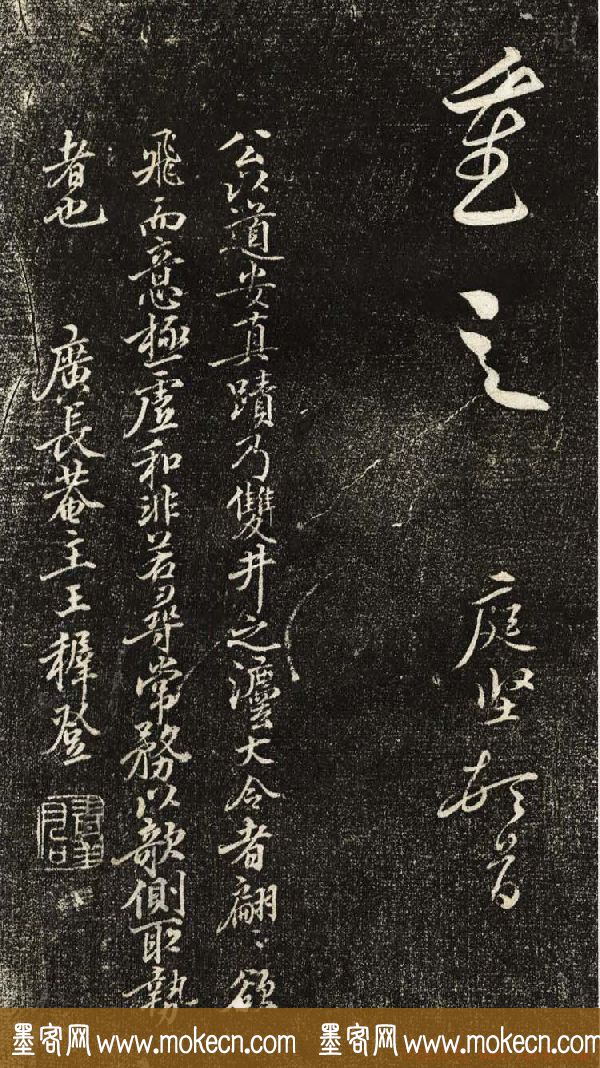 重之 庭坚頓首
公此道安真蹟乃雙井之灋大令者翩〻欲
飛而意極虛和非若尋常務以欹側取執
者也 廣長菴主王穉登
墨客网 www.mokecn.com 墨客网 www.mokecn.com